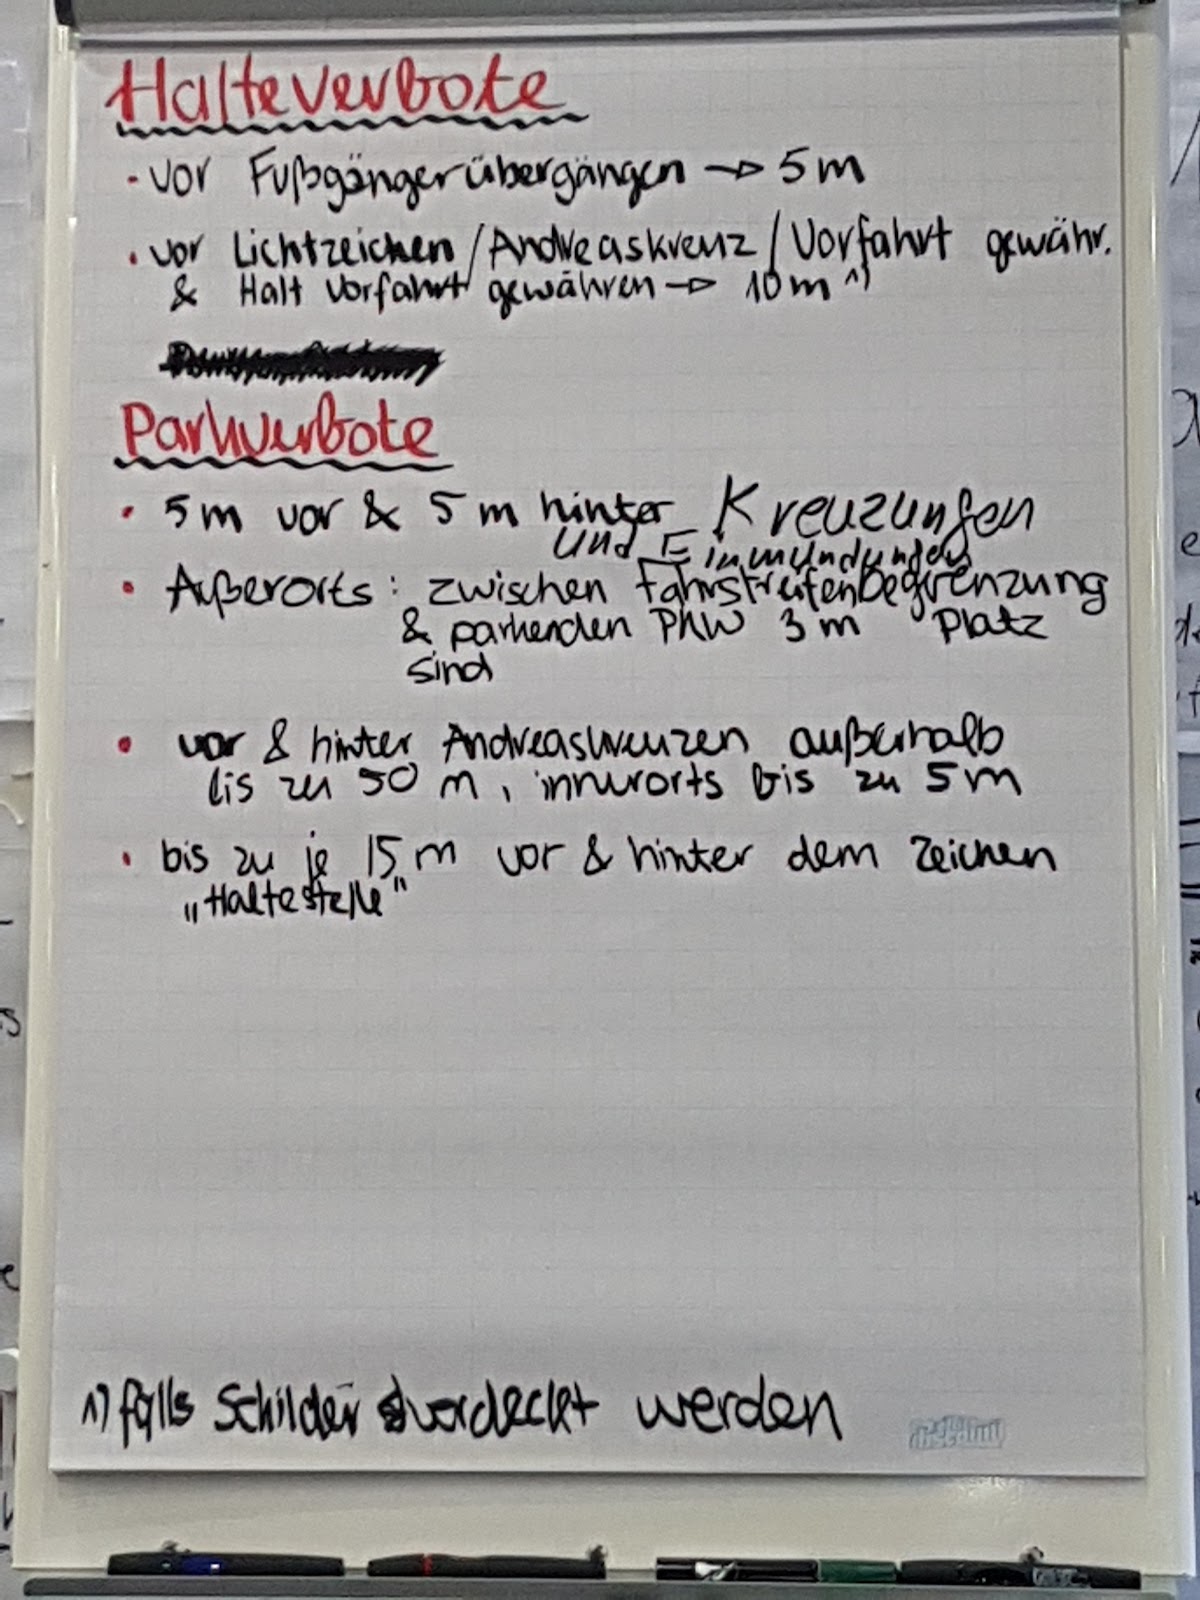 Halteverbote
· vor Fußgängerübergängen → 5m
· vor Lichtzeichen/Andreaskreuz/Vorfahrt gewähr.
& Halt Vorfahrt gewähren → 10m ¹⁾
Parkverbote
· 5m vor & 5m hinter Kreuzungen
und Einmündungen
· Außerorts: zwischen Fahrstreifenbegrenzung
& parkenden PKW 3m Platz
sind
· vor & hinter Andreaskreuzen außerhalb
bis zu 50 m, innerorts bis zu 5m
· bis zu je 15m vor & hinter dem Zeichen
„Haltestelle"
1) falls Schilder verdeckt werden